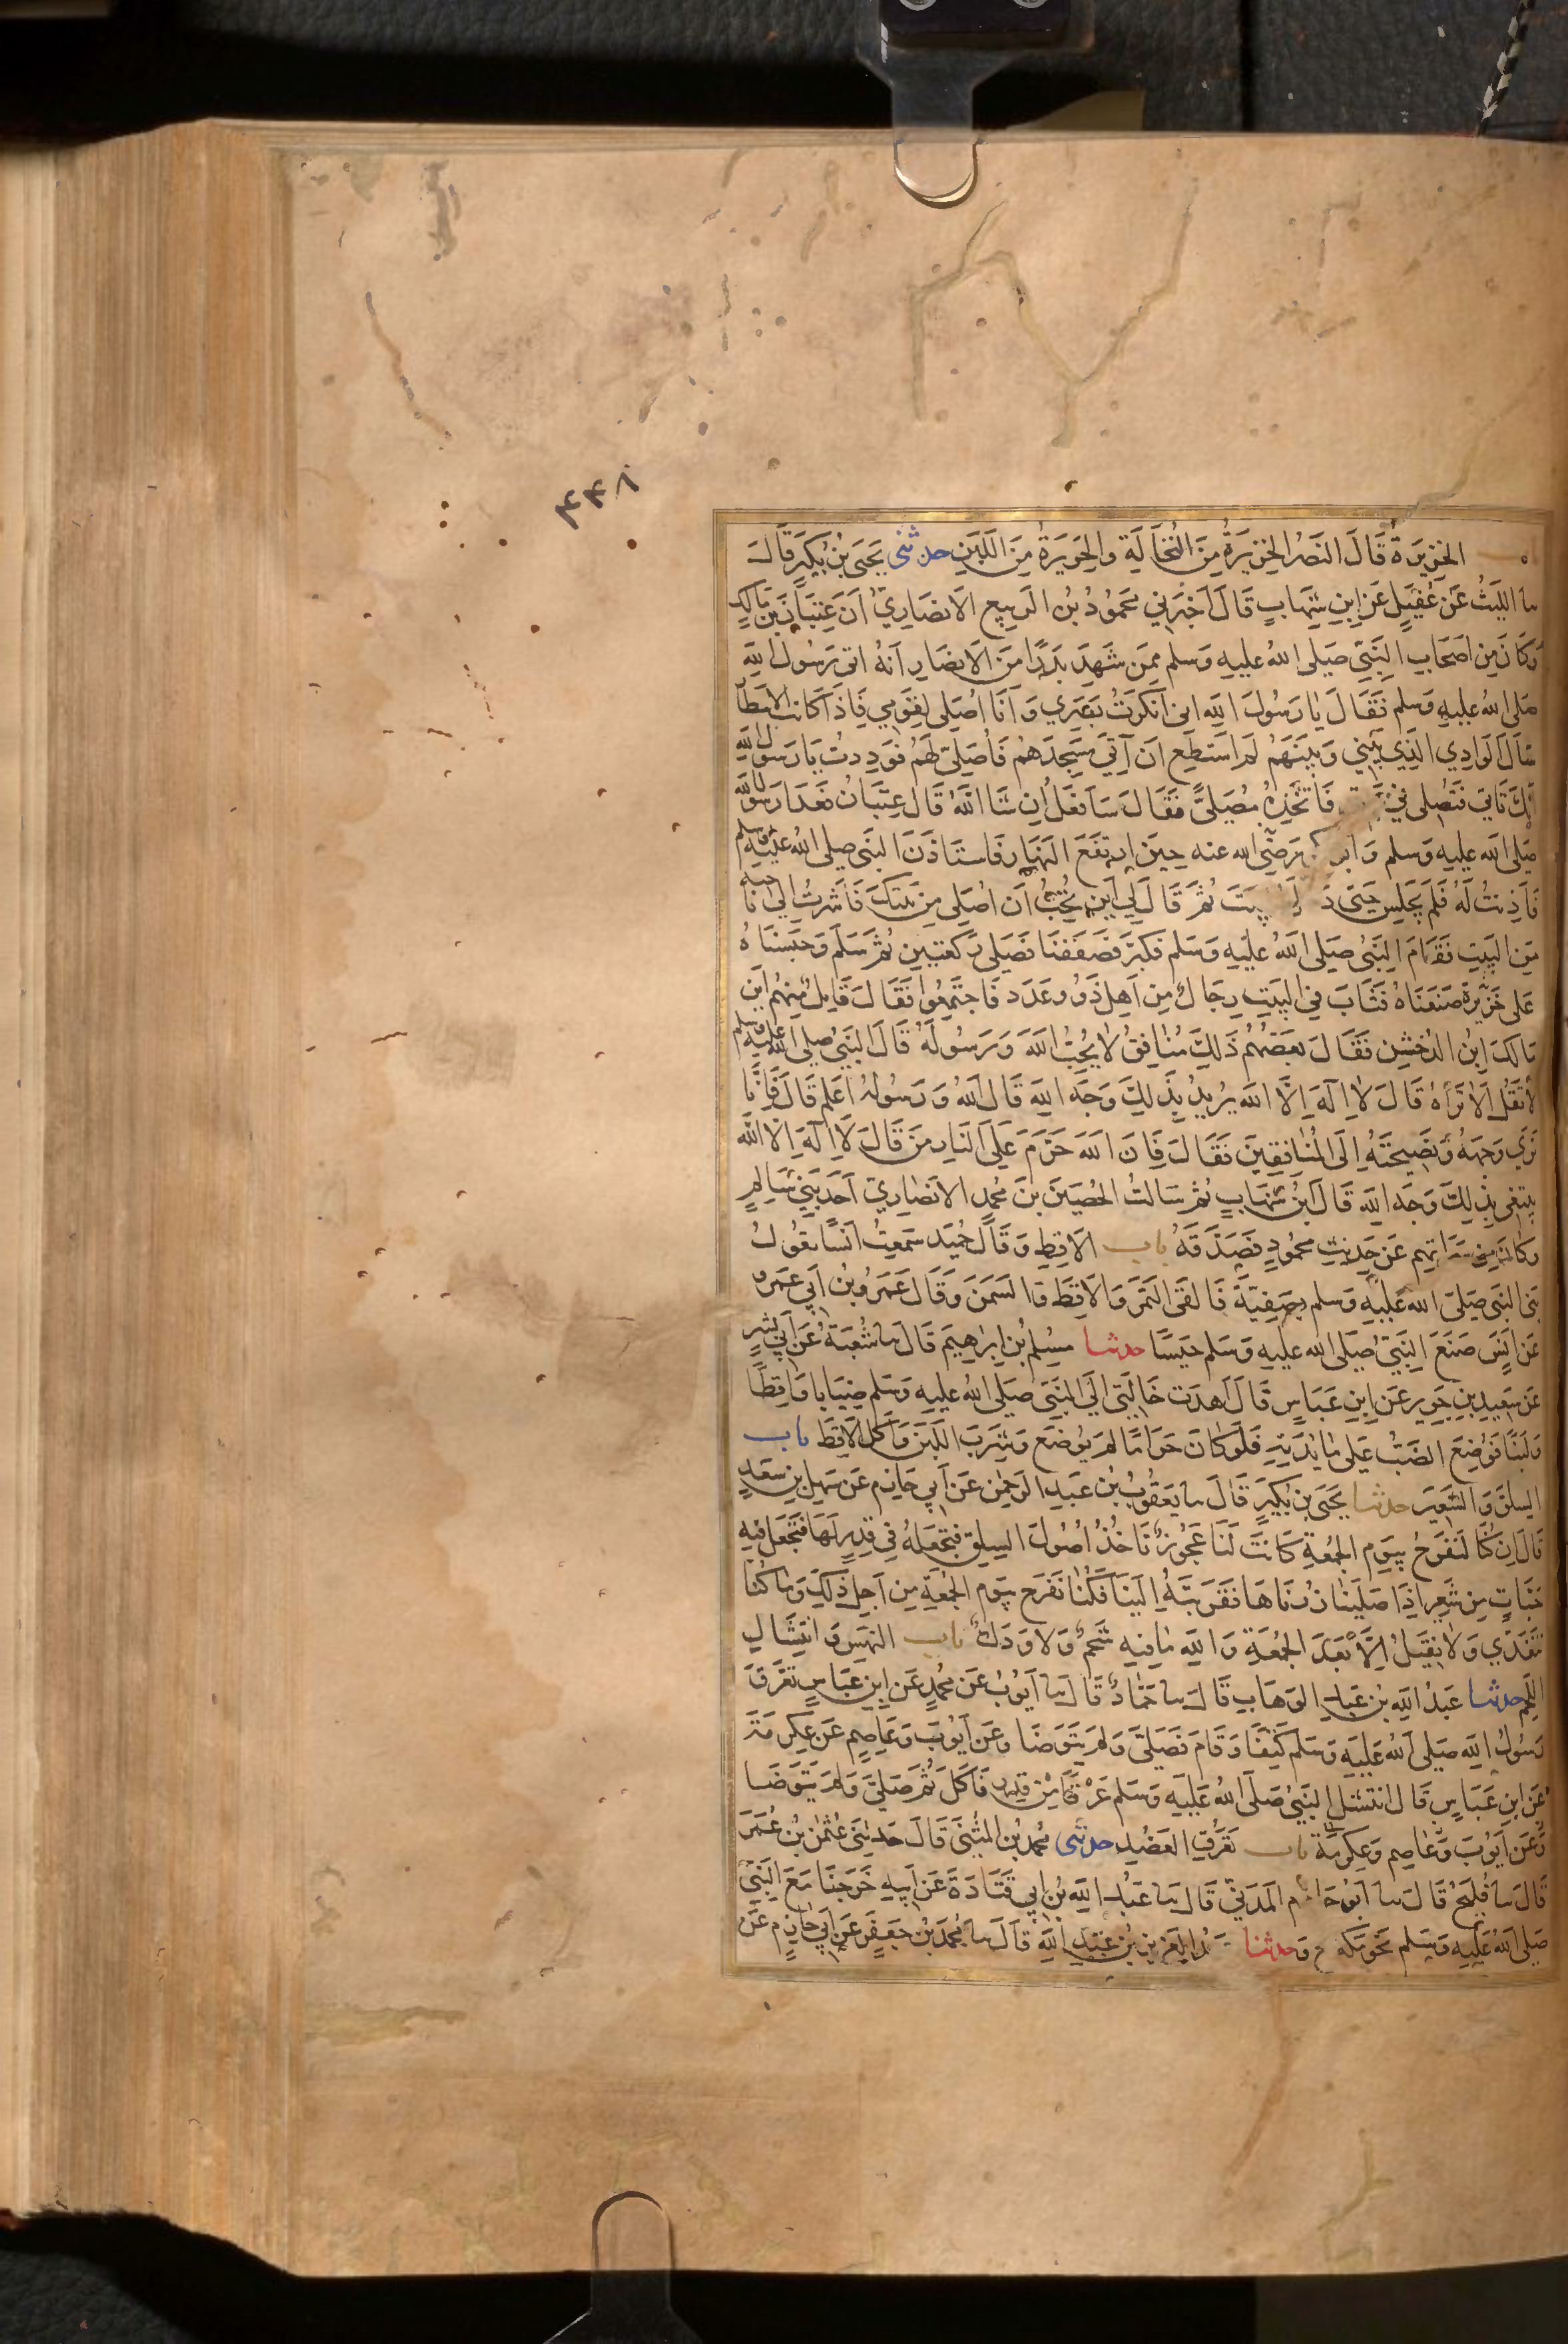 ۴۴۸
الخزيرة قَالَ النَضْرُ الخزِيرَةُ مِنَ النُخَالَةِ والحَرِيرَةُ مِنَ اللَبَنِ حدثنى يَحيَى بْنُ بُكَيرٍ قَالَ
سا الليثُ عَن عُقَيلٍ عَن ابنِ شِهَابٍ قَالَ اَخبَرَنِي محَمُودُ بنُ الرَبِيعِ الاَنصَارِيّ اَنَ عِتبَانَ بنَ مَالِكٍ
وَكَانَ مِن اَصحَابِ النَبِيّ صَلى اللهُ عليهِ وَسلم مِمَن شَهِدَ بَدرًا مِنَ الاَنصَارِ اَنهُ اتى رَسُولَ اللهِ
صَلى اللهُ عليهِ وَسلم فَقَالَ يَا رَسُولَ اللهِ اني انكَرتُ بَصَرِي وَاَنَا اُصَلِى لِقَومِي فَاِذَا كَانَتِ الاَمطَارُ
سَالَ الوَادِي الَذِي بَيْنِي وَبَينَهُم لم اَستَطِع اَن آتِيَ مَسجِدَهُم فَاُصَلِيَ لَهُم فَوَدِدتُ يَا رَسُولَ اللهِ
اَنَكَ تَاتِي فَتُصَلِى فِي فَاَتَخِذُهُ مُصَلىً فَقَالَ سَاَفعَلُ اِن شَا اللهُ قَالَ عِتبَانُ فَغَدَا رَسُولُ الله
صَلى الله عليهِ وَسلم وَابو رَضِيَ الله عنه حِينَ ارتَفَعَ النَهَارُ فَاستَاذَنَ النَبِى صلى الله عليه وسلم
فَاَذِنتُ لَهُ فَلَم يَجلِس حَتى ثُمَ قَالَ لِي اَينَ تُحِبُّ اَن اُصَلِي مِن بَيتِكَ فَاَشَرتُ اِلَى نَاحِيَةٍ
مِنَ البَيتِ فَقَامَ النَبِى صَلى اللهُ عليهِ وَسَلم فَكَبَرَ فَصَفَفنَا فَصَلى رَكعَتَينِ ثُمَ سَلَمَ وَحَبَسنَاهُ
عَلى خَزِيرَةٍ صَنَعنَاهُ فَثَابَ فِي البَيتِ رِجَالٌ مِن اَهلِ ذَوُو عَدَدٍ فَاجتَمَعُوا فَقَالَ قَائِلٌ مِنهُم اَينَ
مَالكُ ابنُ الدُخشُنِ فَقَالَ بَعضُهُم ذَلِكَ مُنَافِقٌ لاَ يُحِبُّ اللهَ وَرَسُولَهُ قَالَ النَبِيُ صلى الله عليه وسلم
لاَ تَقُل اَلاَ تَرَاهُ قَالَ لاَ اِلَهَ اِلَّا اللهُ يُرِيدُ بِذَلِكَ وَجهَ اللهِ قَالَ اللهُ وَرَسُولُهُ اَعلَمُ قَالَ فَاِنَا
نَرَي وَجهَهُ وَنَصِيحَتَهُ اِلَى المُنَافِقِينَ فَقَالَ فَاِنَ اللهَ حَرَمَ عَلَى النَارِ مَن قَالَ لَا اِلَهَ اِلَا اللهُ
يبتغى بِذَلِكَ وَجهَ اللهِ قَالَ ابنُ شِهَابٍ ثُمَ سَالتُ الحُصَينَ بنَ مُحمدٍ الاَنصَارِيَّ اَحَدَ بَنِي سَالِمٍ
وكَانَ مِن سَرَاتِهِم عَن حَدِيثِ محمُودٍ فَصَدَقَهُ باب الاَقِطِ وَقَالَ حُمَيد سَمِعتُ اَنَسًا يَقُولُ
بَنى النَبِى صَلى الله عَليهِ وَسلم بِصَفِيَةَ فَالقَى التَمرَ وَالاَقِطَ وَالسَمنَ وَقَالَ عَمرُو بنُ اَبي عَمرٍو
عَن اَنَسٍ صَنَعَ النَبِيُ صَلى الله عليهِ وَسَلم حَيسًا حدثنا مسلم بْن اِبرَاهِيمَ قَالَ سا شُعبَةُ عَن اَبِي بِشرٍ
عَن سَعِيدِ بنِ جبير عَن ابنِ عَبَاسٍ قَالَ اَهدَت خَالَتِي اِلَى النَبِيّ صَلى اللهُ عليهِ وَسَلم ضِبَابا وَاَقِطًا
وَلَبَنًا فَوُضِعَ الضَبُّ عَلى مَائِدَتِهِ فَلَو كَانَ حَرَامًا لَم يُوضَع وَشَرِبَ اللَبَنَ وَاَكَلَ الاَقِطَ باب
السِلقِ وَالشَعِير حدثنا يَحيَى بن بُكَيرٍ قَالَ سا يَعقُوبُ بن عَبدِ الرَحمنِ عَن اَبِي حَازِم عَن سَهلِ بنِ سَعدٍ
قَالَ اِن كُنَّا لَنَفرَحُ بِيَومِ الجُمُعَةِ كَانَت لَنَا عَجُوزٌ تَاخُذُ اُصُولَ السِلقِ فَتَجعَلهُ فِي قِدرٍ لَهَا فَتَجعَلُ فِيهِ
حَبَّاتٍ مِن شَعِيرٍ اِذَا صَلَينَا زُرنَاهَا فَقَرَبَتهُ اِلَينَا فَكُنَا نَفرَحُ بِيَومِ الجُمُعَةِ مِن اَجلِ ذَلِكَ وَمَا كُنَا
نَتَغَدّي وَلاَ نَقِيلُ اِلَّا بَعدَ الجُمُعَةِ وَاللهِ مَا فِيهِ شَحمٌ وَلاَ وَدَكٌ باب النهسِ وَانتِشَالِ
اللَحمِ حدثنا عَبدُ اللهِ بنُ عَبدِ الوَهَابِ قَالَ سا حَمَّادٌ قَالَ سا اَيُّوبُ عَن مُحمدٍ عَن ابنِ عَبَاسٍ تَعَرَّقَ
رَسُولُ اللهِ صَلى اللهُ عَليهِ وَسَلم كَتِفًا وَقَامَ فَصَلَّى وَلَم يَتَوَضا وعَن اَيُوبَ وَعَاصِمٍ عَن عِكرِمَةَ
عَن ابنِ عَبَاسٍ قَال انتشل النَبِيُ صَلَى اللهُ عَلَيهِ وَسَلم عَرْقًا مِن قِدرٍ فَاَكَلَ ثُمَ صَلى وَلَم يَتَوَضا
وَعَن اَيُوبَ وَعَاصِمٍ وَعِكرِمَة باب تَعَرُّقِ العَضُدِ حدثنى مُحمدُ بنُ المُثَنّى قَالَ حَدثَنِي عُثمنُ بنُ عُمَرَ
قَالَ سا فُلَيحٌ قَالَ سا اَبُو حَازم المَدَنِيّ قَالَ سا عَبدُ اللهِ بنُ ابِي قَتَادَةَ عَن اَبِيهِ خَرَجنَا مَعَ النَبِيّ
صَلى اللهُ عَلَيهِ وَسَلم نَحوَ مَكةَ ح وَحدثنا العَزِيزِ بنُ عَبدِ اللهِ قَالَ سا مُحمَدُ بنُ جَعفَرٍ عَن اَبِي حَازِمٍ عَن